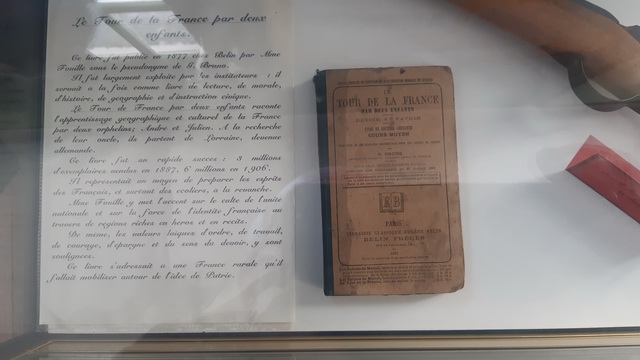 Le Tour de la France par deux
enfants.
Ce livre fut publié en 1877 chez Belin par Mme
Fouillé sous le pseudonyme de G. Bruno.
Il fut largement exploité par les instituteurs : il
servait à la fois comme livre de lecture, de morale,
d'histoire, de géographie et d'instruction civique.
Le Tour de France par deux enfants raconte
l'apprentissage géographique et culturel de la France
par deux orphelins; André et Julien. A la recherche
de leur oncle, ils partent de Lorraine, devenue
allemande.
Ce livre fut un rapide succès : 3 millions
d'exemplaires vendus en 1887, 6 millions en 1906.
Il représentait un moyen de préparer les esprits
des Français, et surtout des écoliers, à la revanche.
Mme Fouillé y met l'accent sur le culte de l'unité
nationale et sur la force de l'identité française au
travers de régions riches en héros et en récits.
De même, les valeurs laïques d'ordre, de travail,
de courage, d'épargne et du sens du devoir, y sont
soulignées.
Ce livre s'adressait à une France rurale qu'il
fallait mobiliser autour de l'idée de Patrie.
LE
TOUR DE LA FRANCE
PAR DEUX ENFANTS
DEVOIR ET PATRIE
LIVRE DE LECTURE COURANTE
COURS MOYEN
G. BRUNO
PARIS
LIBRAIRIE CLASSIQUE D'EUGÈNE BELIN
BELIN FRÈRES